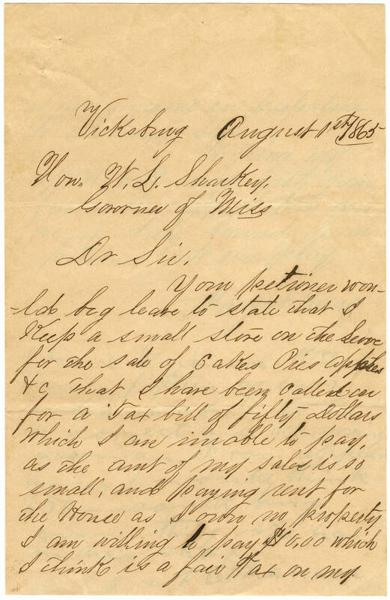 Vicksburg August 1st 1865
Hon. W. L. Sharkey.
Governer of Miss
Dr Sir.
Your petioner wou-
-ld beg leave to state that I
Keep a small store on the Levee
for the sale of Cakes Pies apples
&c That I have been called on
for a Tax bill of fifty Dollars
Which I am unable to pay,
as the amt of my sales is so
small, and paying rent for
the House as I own no property
I am willing to pay $10,00 which
I think is a fair Tax on my